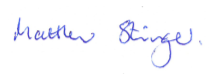 Matthew Stringer.